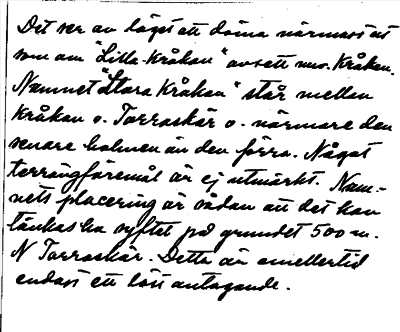 Det ser av läget att döma närmast ut
som om "Lilla Kråkan" avsett nuv. Kråkan.
Namnet "Stora Kråkan" står mellan
Kråkan o. Torraskär o. närmare den
senare holmen än den förra. Något
terrängföremål är ej utmärkt. Nam-
nets placering är sådan att det kan
tänkas ha syftet på grundet 500 m.
N Torraskär. Detta är emellertid
endast ett löst antagande.